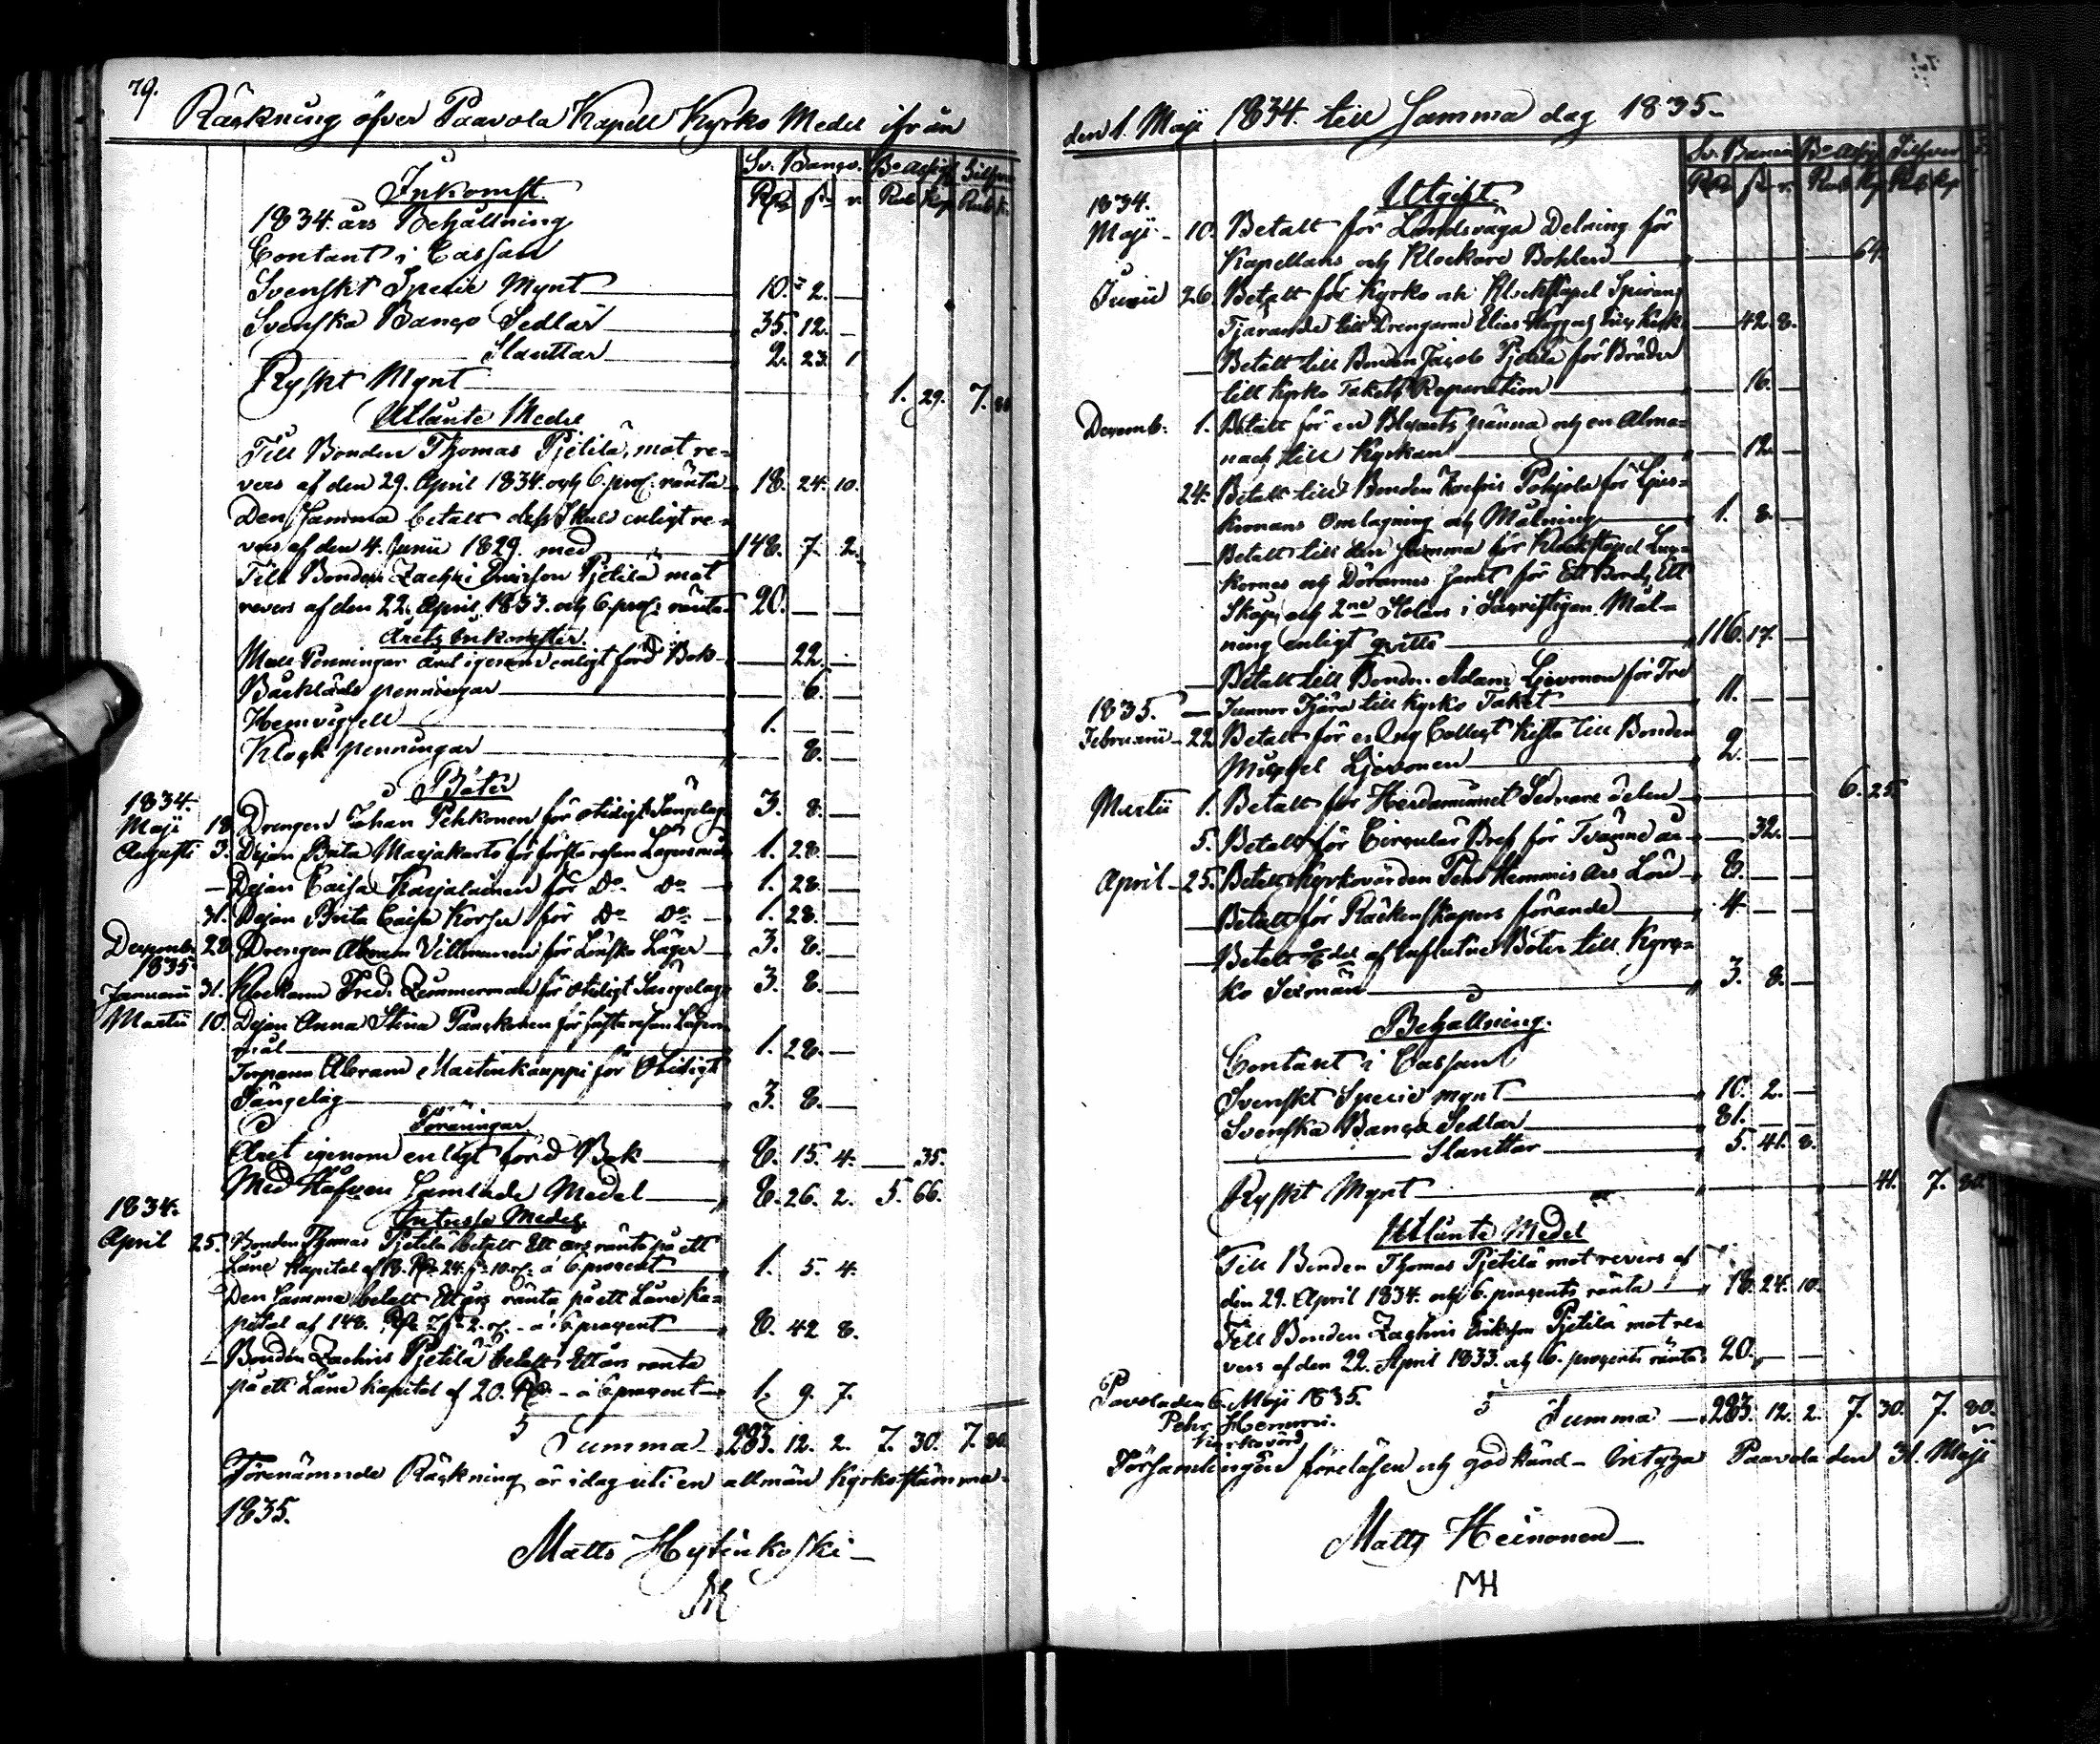 79.
Räkning öfver Paavola Kapell Kyrko Medel ifrån
Sv. Banco. Bo Assig Silfver
Rdr s. r. Rub Kop Rub k.
Inkomst.
1834. års Behållning
Contant i Cassan
Svenskt Specie Mynt 10. 2. —
Svenska Banco Sedlar 35. 12. —
Slanttar 2. 23. 1
Ryskt Mynt 1. 29. 7. 80
Utlånte Medel
Till Bonden Thomas Pjetilä, mot re-
vers af den 29. April 1834. och 6. proc. ränta 18. 24. 10.
Den Samma betalt dess skuld enligt re-
vers af den 4. Junii 1829. med 148. 7. 2.
Till Bonden Zachri Ericson Pjetilä mot
revers af den 22. April 1833. och 6. proc. ränta 20. — —
Årets Inkomster.
Mull Penningar året igenom enligt förd Bok — 22. —
Bårkläds penningar — 6. —
Hemvigsell 1. — —
Klock penningar — 8. —
Böter
1834.
Maji 18 Drengen Johan Pehkonen för otidigt Sängelag 3. 8. —
Augusti 3. Pigan Brita Marjakarts för första resan Lägersmål 1. 28. —
— Pigan Caisa Karjalainen för Do Do — 1. 28. —
31. Pigan Brita Caisa Korser för Do Do — 1. 28. —
Decemb. 28. Drengen Abram Villmunen för Lönsko Läger 3. 8. —
1835
Januarii 31. Klockaren Fred. Zimmerman för otidigt Sängelag 3. 8. —
Martii 10. Pigan Anna Stina Paaskonen för första resan Lägers
mål 1. 28. —
Torparen Abram Martinkauppi för Otidigt
Sängelag 3. 8. —
Föräringar
Året igenom enligt förd Bok 8. 15. 4. — 35.
Med Håfven Samlade Medel 8. 26. 2. 5. 66.
Intresse Medel
1834.
April 25. Bonden Thomas Pjetilä betalt Ett års ränta på ett
Låne Kapital af 18. Rdr 24. s. 10. r. a 6 procent 1. 5. 4.
Den Samma betalt Ett års ränta på ett Låne Ka-
pital af 148. Rdr 7 s. 2. r. — a 6 procent 8. 42 8.
— Bonden Zachris Pjetilä betalt Ett års ränta
på ett Låne Kapital af 20. Rdr — a 6 procent 1. 9. 7.
Summa 283. 12. 2. 7. 30. 7. 80.
Förenämnde Räkning är i dag uti en allmän Kyrkostämma
1835.
Matts Hylinkoski
den 1. Maji 1834. till Samma dag 1835
Sv. Banco Bo Assig Silfver
Rdr s. r. Rub Kop Rub kop
1834. Utgift.
Maji — 10. Betalt för Landsväga Delning för
Kapellans och Klockare Bohlen — 64.
Junii 26. Betalt för Kyrko och Klockstapel Spirans
Tjärande till Drengarne Elias — 42. 8.
— Betalt till Bonden Jacob Pjetilä för Bräder
till Kyrko Takets Reparation — 16. —
Decemb: 1. Betalt för en Blyarts pänna och en Alma-
nach till Kyrkan — 12. —
24. Betalt till Bonden Zachris Pohjola för Ljus-
kronans Omlagning och Målning 1. 8. —
— Betalt till den Samma för Klockstapel Luc-
kornes och Dörarnes samt för Ett Bord, Ett
Skåp, och 2ne Stolars i Sacristigan Mål-
ning enligt qvitto 116. 17. —
— Betalt till Bonden Adam Ljovonen för Tre
1835. — Tunnor Tjära till Kyrko Taket 11. — —
Februarii — 22. Betalt för en Ny Collect Kista till Bonden
Michel Ljovonen 2. — —
Martii 1. Betalt för Herdaminnet Sednare delen — 6. 25.
5. Betalt för Circulär Bref för Tvänne år — 32. —
April — 25. Betalt Kyrkovärden Pehr Hemmis Års Lön 8. — —
— Betalt för Räkenskapers förande 4. — —
— Betalt del af Influtne Böter till Kyrc-
ko Sexmän 3. 8. —
Behållning.
Contant i Cassan
Svenskt Specie mynt 10. 2. —
Svenska Banco Sedlar 81. — —
Slanttar 5. 41. 8.
Ryskt Mynt — 41. 7. 80.
Utlånte Medel
Till Bonden Thomas Pjetilä mot revers af
den 29. April 1834. och 6. procents ränta 18. 24. 10.
Till Bonden Zachris Erikson Pjetilä mot re-
vers af den 22. April 1833. och 6. procents ränta 20. — —
Paavola den 6. Maji 1835. Summa 283. 12. 2. 7. 30. 7. 80.
Pehr Hemmi.
Kyrkovärd
Församlingen föreläsen och godkänd — intyga Paavola den 31. Maji
Matts Heinonen
MH